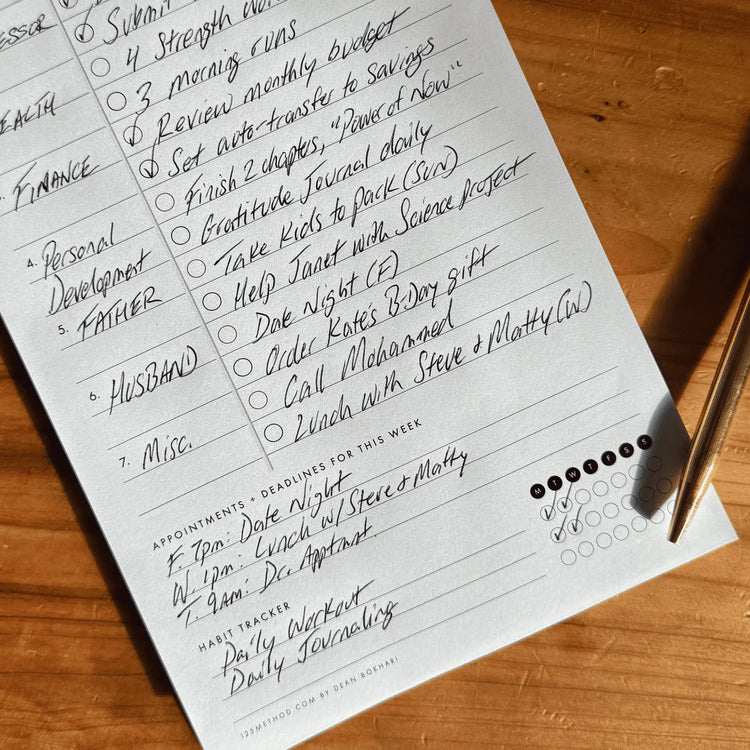 ESSOR
Submit
4 Strength
HEALTH
3 morning runs
Review monthly budget
3. FINANCE
Set auto-transfer to Savings
Finish 2 chapters, "Power of Now"
4. Personal
Development
Gratitude Journal daily
Take Kids to park (SUN)
5. FATHER
Help Janet with Science Project
Date Night (F)
6. HUSBAND
Order Kate's B-Day gift
Call Mohammed
7. Misc.
Lunch with Steve & Matty (W)
APPOINTMENTS + DEADLINES FOR THIS WEEK
F. 7pm: Date Night
W. 1pm: Lunch w/ Steve & Matty
T. 9AM: Dr. Apptmnt.
M T W T F S S
HABIT TRACKER
Daily Workout
Daily Journaling
125METHOD.COM BY DEAN BOKHARI